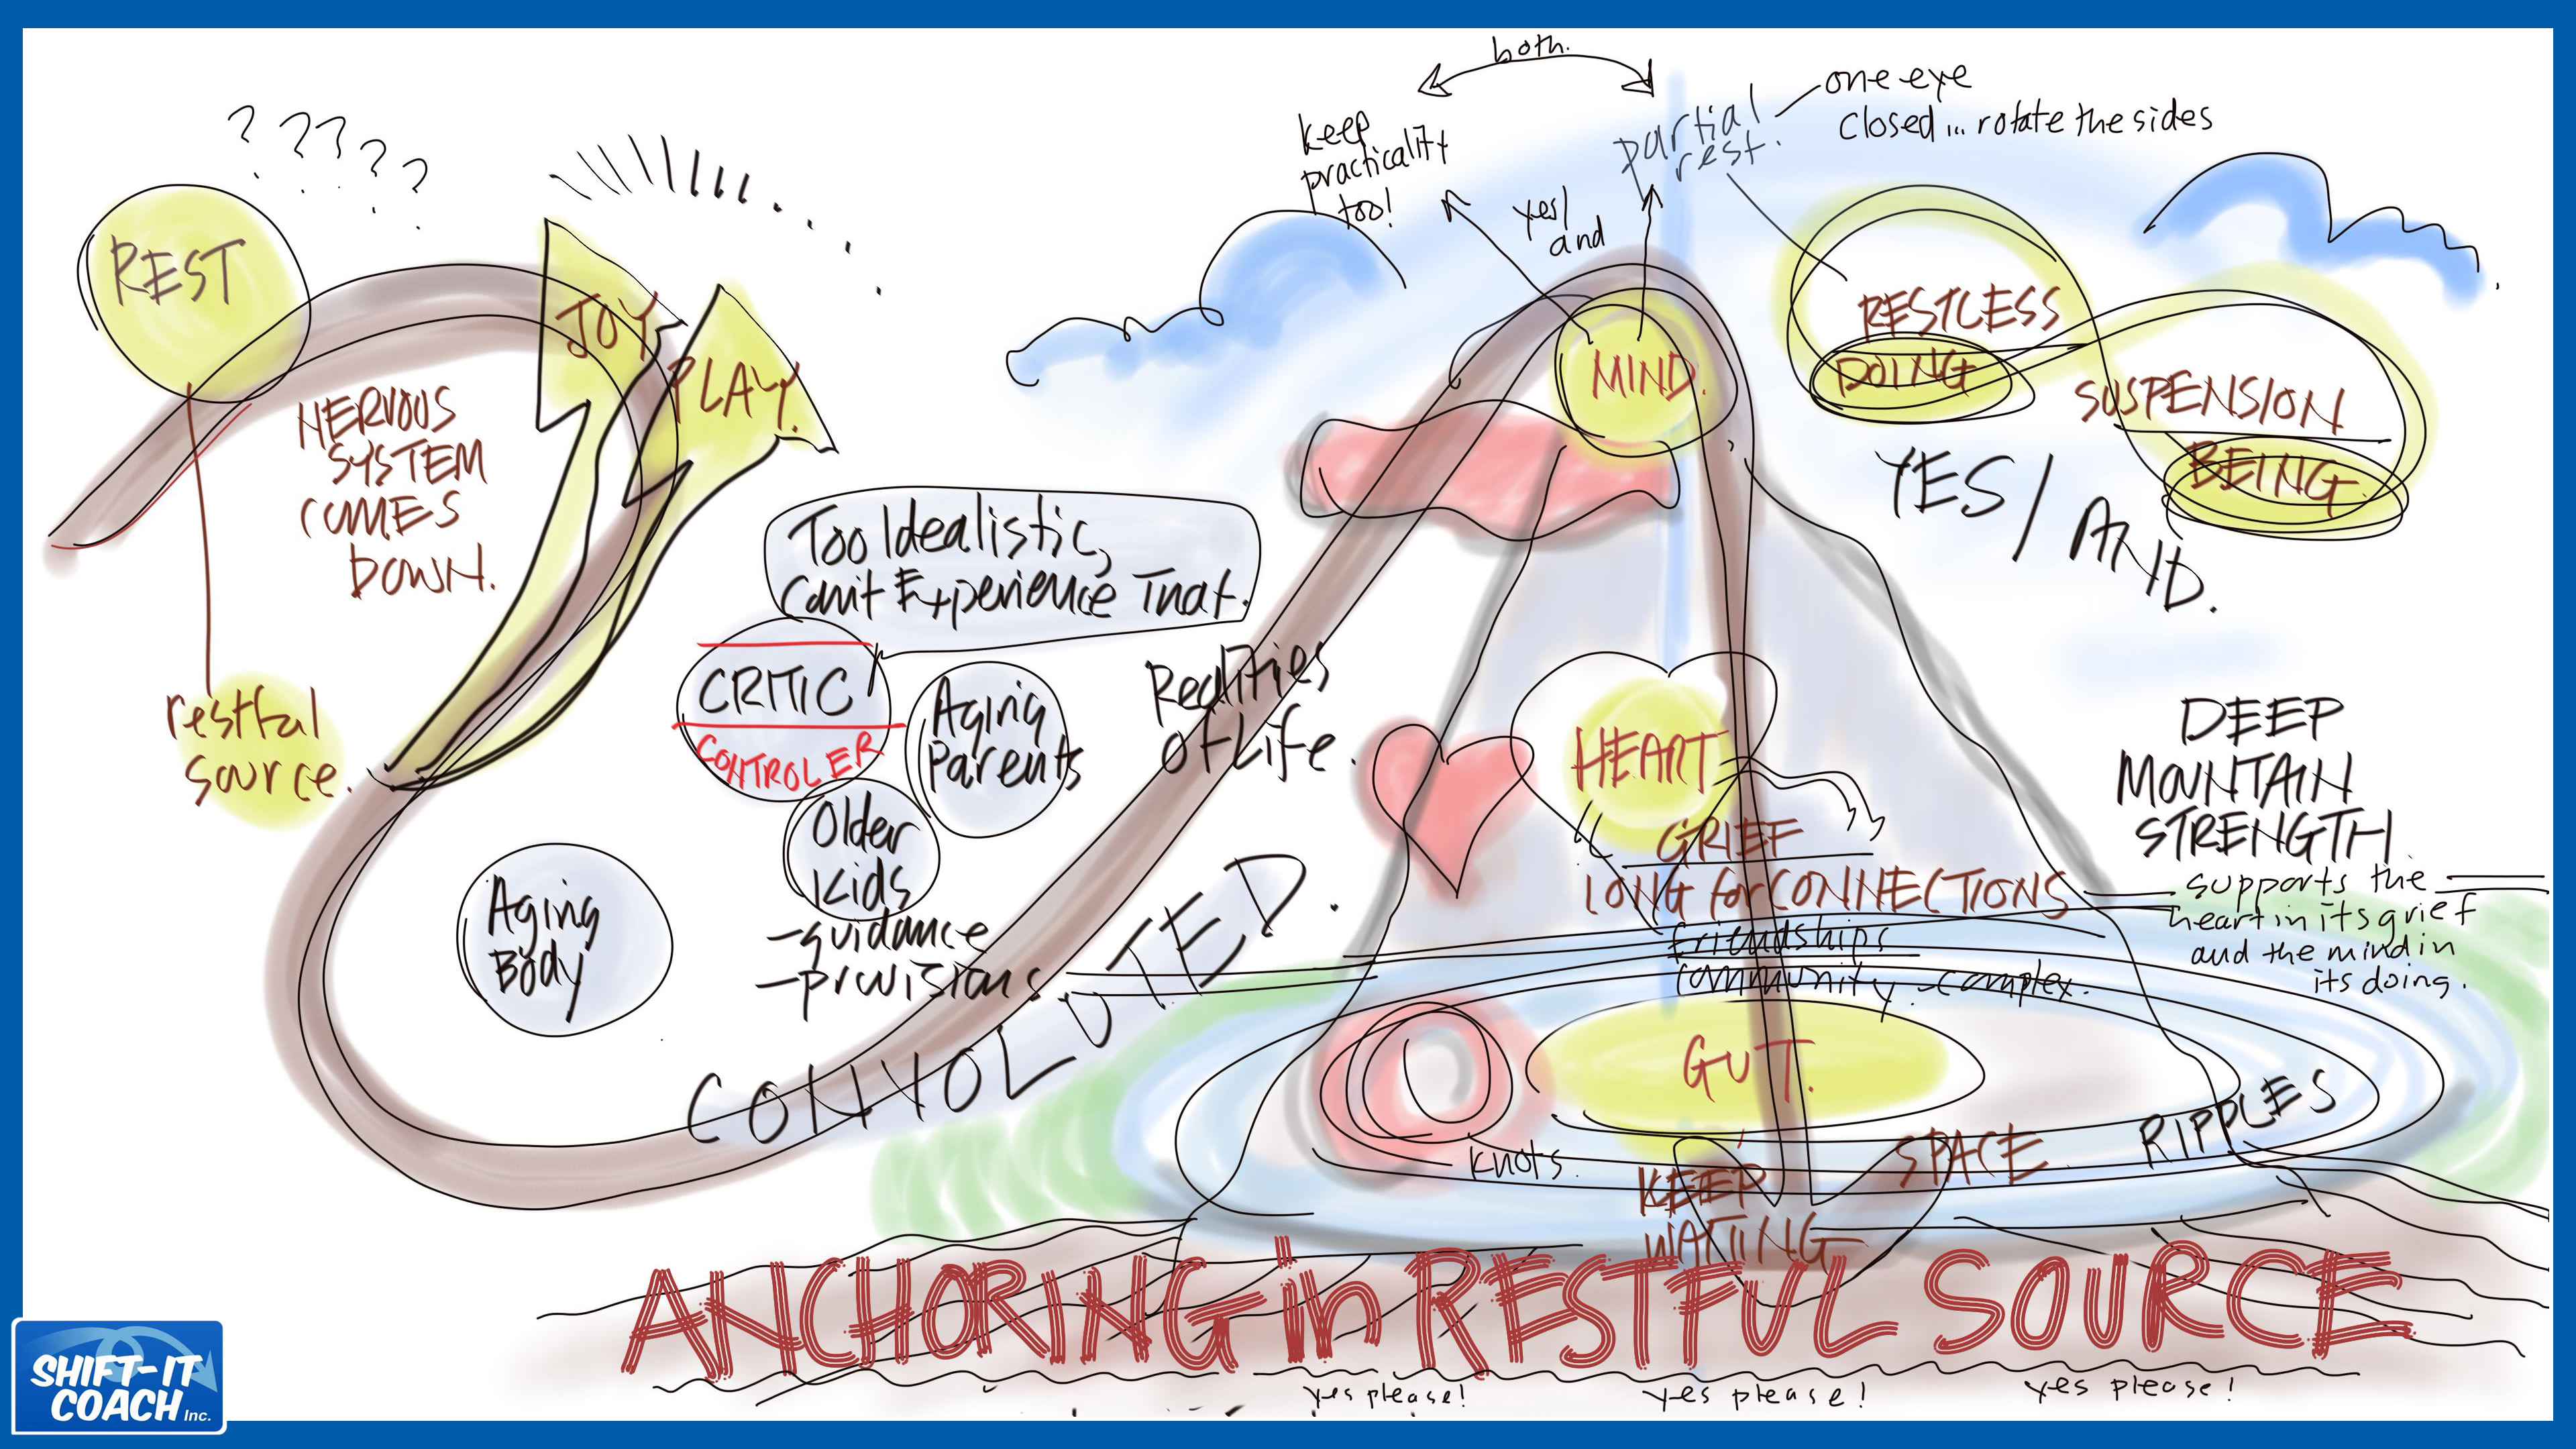 ? ? ? ? ?
REST
NERVOUS
SYSTEM
COMES
DOWN.
restful
source.
JOY
PLAY.
Too Idealistic,
Can't Experience That.
CRITIC
CONTROLER
Aging
Parents
Older
Kids
-guidance
-provisions
Aging
Body
Realities
of Life.
CONVOLUTED.
both.
keep
practicality
too!
yes/
and
partial
rest.
one eye
closed... rotate the sides
MIND.
RESTLESS
DOING
SUSPENSION
BEING
YES/AND.
HEART
GRIEF
LONG for CONNECTIONS
friendships
community - complex.
DEEP
MOUNTAIN
STRENGTH
supports the
heart in its grief
and the mind in
its doing.
GUT.
knots.
KEEP
WAITING
SPACE
RIPPLES
ANCHORING in RESTFUL SOURCE
yes please! yes please! yes please!
SHIFT-IT
COACH Inc.